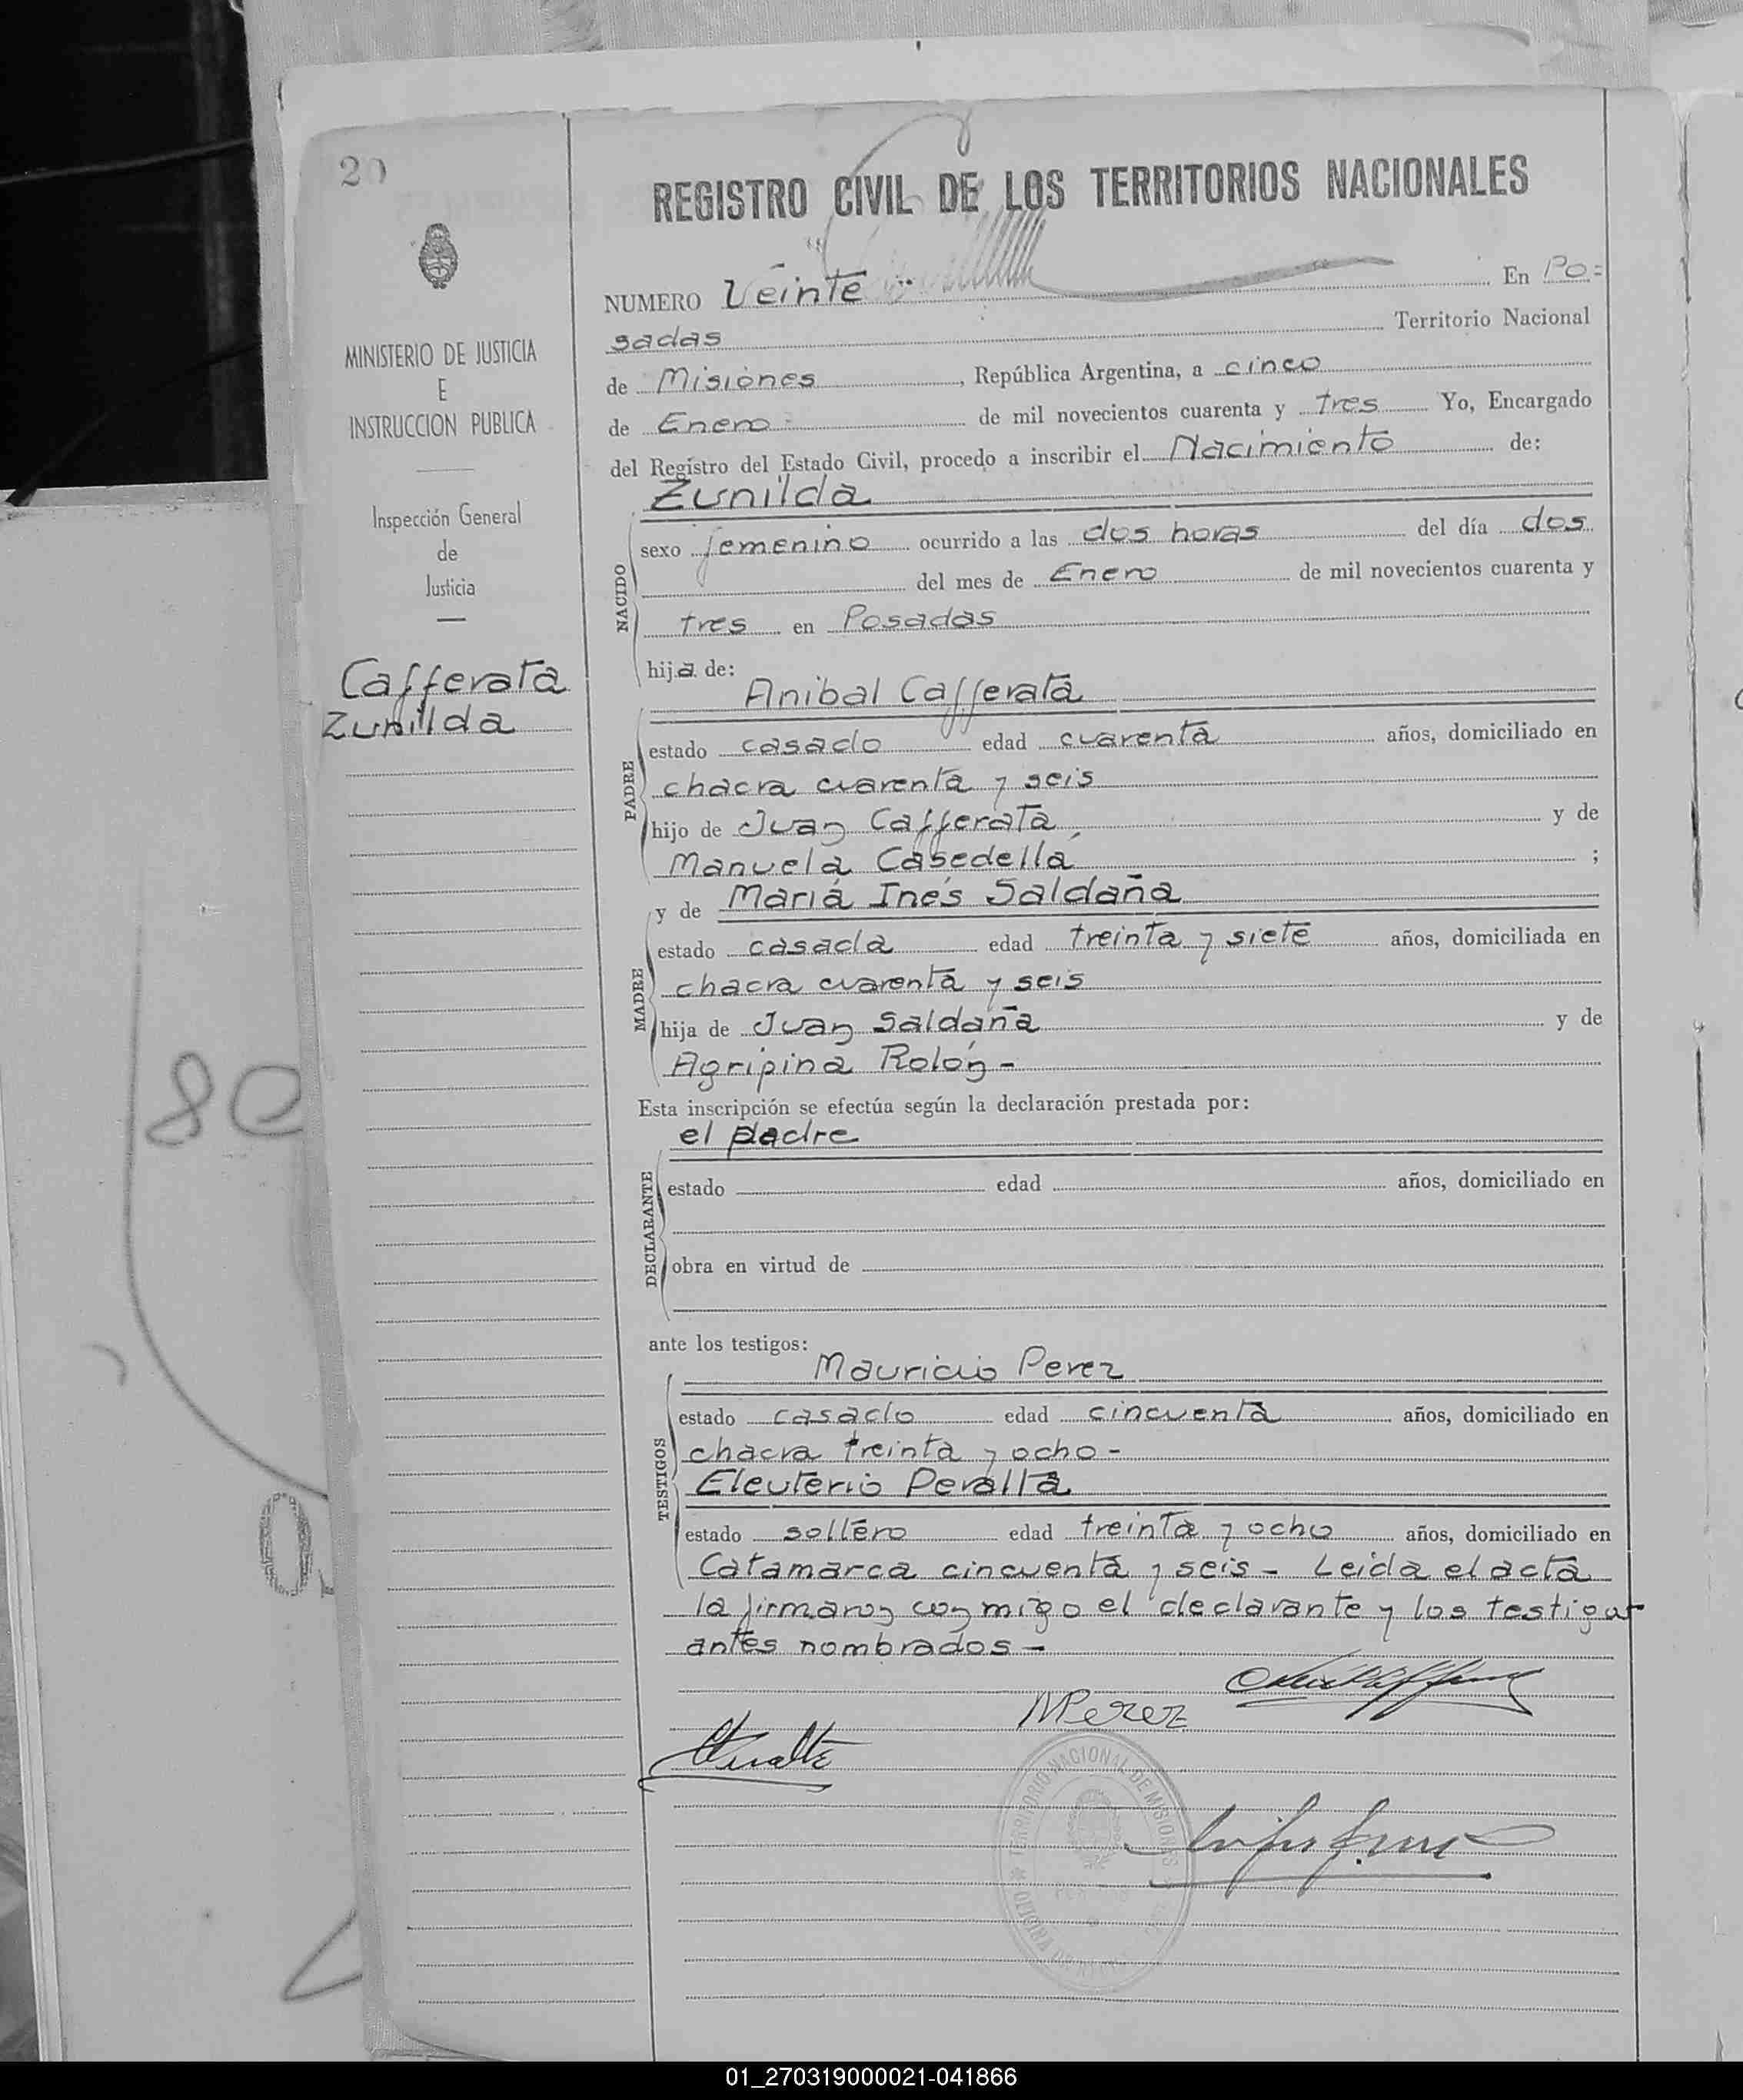 20
MINISTERIO DE JUSTICIA
E
INSTRUCCION PUBLICA
Inspección General
de
Justicia
Cafferata
Zunilda
REGISTRO CIVIL DE LOS TERRITORIOS NACIONALES
NUMERO Veinte En Po=
sadas Territorio Nacional
de Misiones, República Argentina, a cinco
de Enero de mil novecientos cuarenta y tres Yo, Encargado
del Registro del Estado Civil, procedo a inscribir el Nacimiento de:
Zunilda
NACIDO
sexo femenino ocurrido a las dos horas del día dos
del mes de Enero de mil novecientos cuarenta y
tres en Posadas
hija de:
Anibal Cafferata
PADRE
estado casado edad cuarenta años, domiciliado en
chacra cuarenta y seis
hijo de Juan Cafferata y de
Manuela Casedella ;
y de María Inés Saldaña
MADRE
estado casada edad treinta y siete años, domiciliada en
chacra cuarenta y seis
hija de Juan Saldaña y de
Agripina Rolón -
Esta inscripción se efectúa según la declaración prestada por:
el padre
DECLARANTE
estado edad años, domiciliado en
obra en virtud de
ante los testigos:
Mauricio Perez
TESTIGOS
estado casado edad cincuenta años, domiciliado en
chacra treinta y ocho -
Eleuterio Peralta
estado soltero edad treinta y ocho años, domiciliado en
Catamarca cincuenta y seis - Leida el acta
la firmaron conmigo el declarante y los testigos
antes nombrados -
MPerez
TERRITORIO NACIONAL DE MISIONES
80
0
01_270319000021-041866